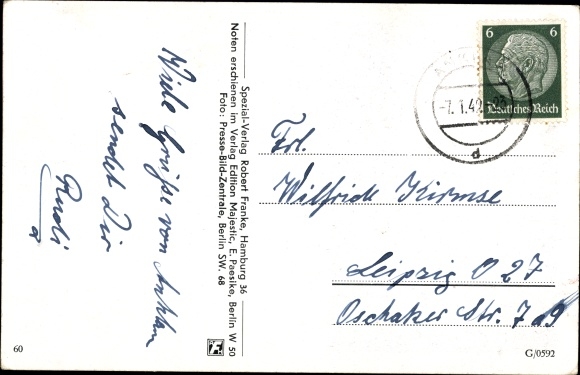 Viele Grüße von
sendet Dir
Rudi
Spezial-Verlag Robert Franke, Hamburg 36
Noten erschienen im Verlag Edition Majestic, E. Paesike, Berlin W 50
Foto: Presse-Bild-Zentrale, Berlin SW. 68
6 6
Deutsches Reich
-7.1.42
d
Frl.
Wilfriede Kirmse
Leipzig O 27
Oschatzer Str. 7
60
G/0592